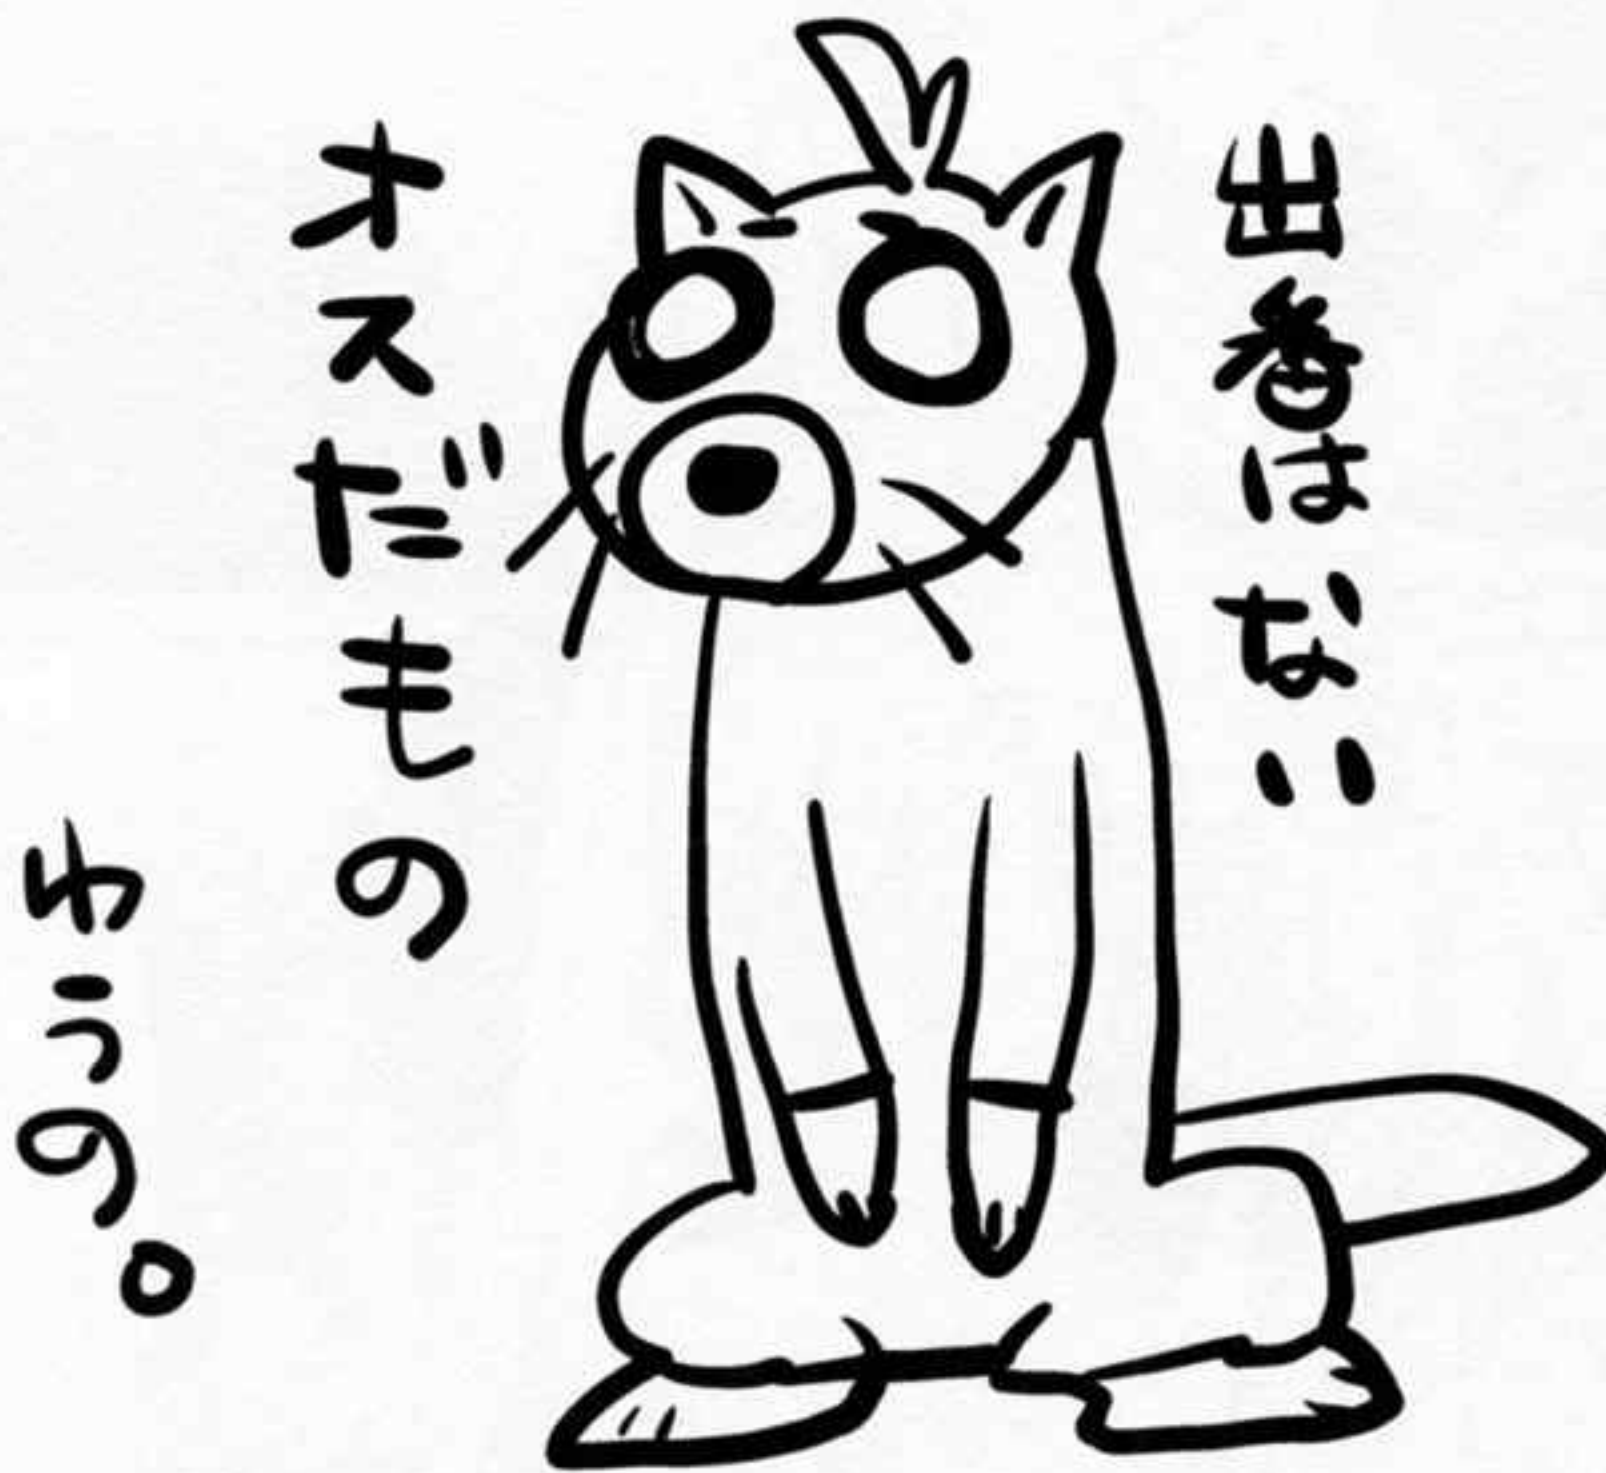 出番はない
オスだもの
ゆうの。